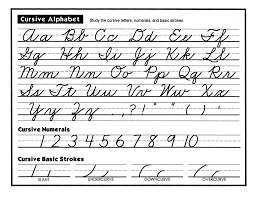 Cursive Alphabet Study the cursive letters, numerals, and basic strokes.
Aa Bb Cc Dd Ee Ff
Gg Hh Ii Jj Kk Ll
Mm Nn Oo Pp Qq Rr
Ss Tt Uu Vv Ww Xx
Yy Zz . , ? ! ' " " ( )
Cursive Numerals
1 2 3 4 5 6 7 8 9 10
Cursive Basic Strokes
SLANT UNDERCURVE DOWNCURVE OVERCURVE